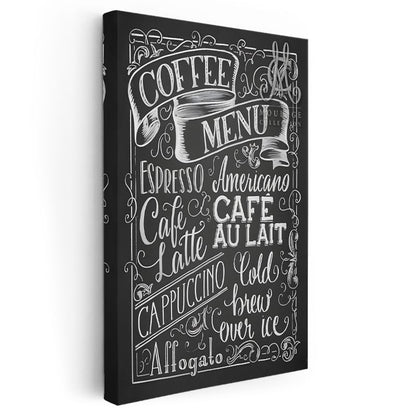 COFFEE
MENU
ESPRESSO
Americano
Café
Latte
CAFÉ
AU LAIT
CAPPUCCINO
Cold
brew
over ice
Affogato